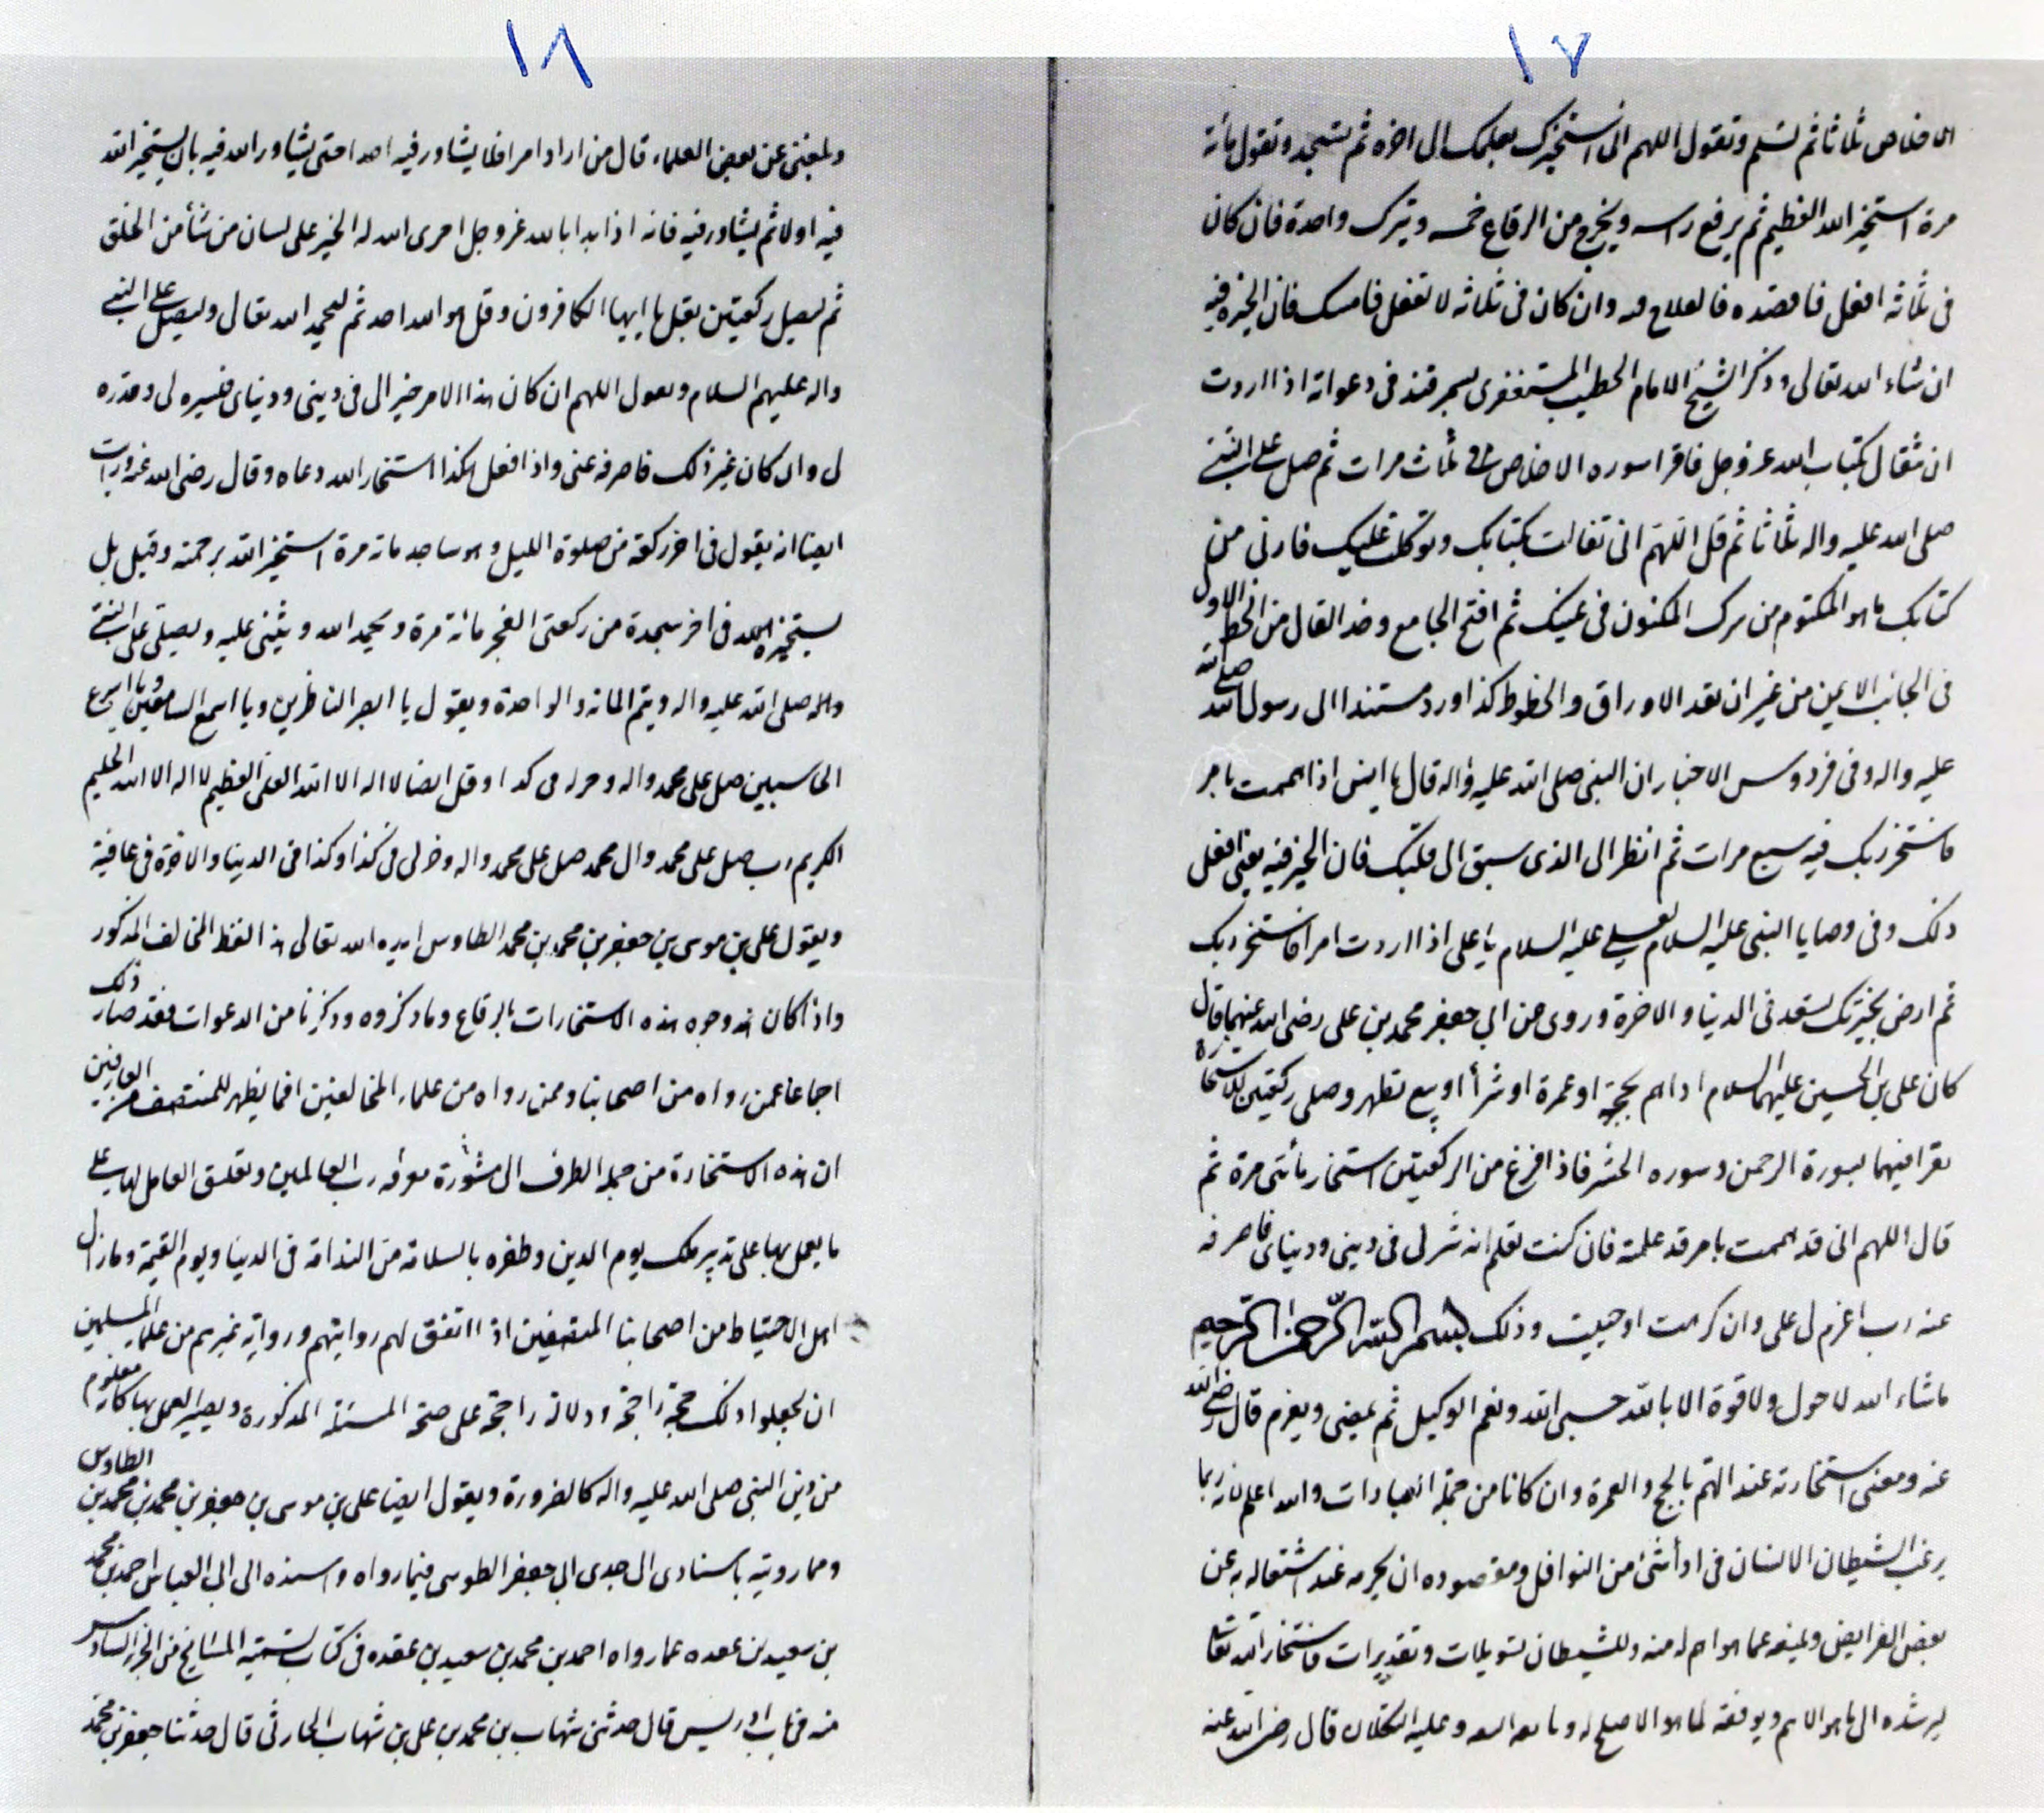 ١٧
الاخلاص ثلاثا ثم تسلم وتقول اللهم انى استخيرك بعلمك الى اخره ثم تسجد وتقول مائة
مرة استخير الله العظيم ثم يرفع راسه ويخرج من الرقاع خمسه ويترك واحدة فان كان
فى ثلاثه افعل فاقصده فالصلاح فيه وان كان فى ثلاثه لا تفعل فامسك فان الخيرة فيه
ان شاء الله تعالى وذكر الشيخ الامام الخطيب المستغفرى بسمرقند فى دعواته اذا اردت
ان تتفال بكتاب الله عز وجل فاقرا سوره الاخلاص ثلاث مرات ثم صل على النبى
صلى الله عليه واله ثلاثا ثم قل اللهم انى تفالت بكتابك وتوكلت عليك فارنى من
كتابك ما هو المكتوم من سرك المكنون فى غيبك ثم افتح الجامع وخذ الفال من الخط الاول
فى الجانب الايمن من غير ان تعد الاوراق والخطوط كذا اورد مستندا الى رسول الله صلى الله
عليه واله وفى فردوس الاخبار ان النبى صلى الله عليه واله قال يا انس اذا هممت بامر
فاستخر ربك فيه سبع مرات ثم انظر الى الذى سبق الى قلبك فان الخير فيه يعنى افعل
ذلك وفى وصايا النبى عليه السلام لعلى عليه السلام يا على اذا اردت امرا فاستخر ربك
ثم ارض بخيرتك تسعد فى الدنيا والاخرة وروى عن ابي جعفر محمد بن على رضى الله عنهما قال
كان على بن الحسين عليهما السلام اذا هم بحجة او عمرة او شرأ او بيع تطهر وصلى ركعتين للاستخارة
يقرا فيهما بسورة الرحمن وسوره الحشر فاذا فرغ من الركعتين استخار مأتى مرة ثم
قال اللهم انى قد هممت بامر قد علمته فان كنت تعلم انه شر لى فى دينى ودنياى فاصرفه
عنه رب اعزم لى على وان كرهت او حبيت وذلك بسم الله الرحمن الرحيم
ما شاء الله لا حول ولا قوة الا بالله حسبى الله ونعم الوكيل ثم يمضى ويعزم قال رضى الله
عنه ومعنى استخارته عند الهم بالحج والعمرة وان كانا من جملة العبادات والله اعلم لانه ربما
يرغب الشيطان الانسان فى اداء شئ من النوافل ومقصوده ان يحرمه عند اشتغاله به عن
بعض الفرايض ويمنعه عما هو اهم له منه وللشيطان تسويلات وتقديرات فاستخار الله تعالى
ليرشده الى ما هو الاهم ويوفقه لما هو الاصلح له وبالله وعليه التكلان قال رضى الله عنه
١٨
وبلغنى عن بعض العلماء قال من اراد امرا فلا يشاور فيه احدا حتى يشاور الله فيه بان يستخير الله
فيه اولا ثم يشاور فيه فانه اذا بدا بالله عز وجل اجرى الله له الخير على لسان من شأ من الخلق
ثم ليصل ركعتين بقل يا ايها الكافرون وقل هو الله احد ثم ليحمد الله تعالى وليصل على النبى
واله عليهم السلام ويقول اللهم ان كان هذا الامر خيرا لى فى دينى ودنياى فيسره لى وقدره
لى وان كان غير ذلك فاصرفه عنى واذا فعل هكذا استخار الله دعاه وقال رضى الله عنه ورايت
ايضا انه يقول فى اخر ركعة من صلوة الليل وهو ساجد مائة مرة استخير الله برحمته وقيل بل
يستخيره الله فى اخر سجدة من ركعتى الفجر مائة مرة ويحمد الله ويثنى عليه ويصلى على النبى
واله صلى الله عليه واله ويتم المائة والواحدة ويقول يا ابصر الناظرين ويا اسمع السامعين ويا اسرع
الحاسبين صل على محمد واله وخر لى فى كذا وقل ايضا لا اله الا الله العلى العظيم لا اله الا الله الحليم
الكريم رب صل على محمد وال محمد صل على محمد واله وخر لى فى كذا وكذا فى الدنيا والاخرة فى عافية
ويقول على بن موسى بن جعفر بن محمد بن محمد الطاوس ايده الله تعالى هذا لفظ المخالف المذكور
واذا كان هذه وجوه هذه الاستخارات بالرقاع وما ذكروه وذكرنا من الدعوات فقد صار ذلك
اجماعا عمن رواه من اصحابنا وممن رواه من علماء المخالفين افما يظهر للمنتصف من العارفين
ان هذه الاستخارة من جملة الطرف الى مشورة رب العالمين وتعلق العامل لها على
ما يعمل بها على تدبير ملك يوم الدين وظفره بالسلامة من الندامة فى الدنيا ويوم القيمة وما زال
اهل الاحتياط من اصحابنا المتصفين اذا اتفق لهم روايتهم ورواية غيرهم من علماء المسلمين
ان يجعلوا ذلك حجة راجحة ودلالة راجحة على صحة المسئلة المذكورة ويصير العمل بها كانه معلوم
من دين النبى صلى الله عليه واله كالضرورة ويقول ايضا على بن موسى بن جعفر بن محمد بن محمد بن الطاوس
ومما رويته باسنادى الى جدى ابى جعفر الطوسى فيما رواه واسنده الى ابى العباس احمد بن محمد
بن سعيد بن عقده عما رواه احمد بن محمد بن سعيد بن عقده فى كتاب تسمية المشايخ من الجزء السادس
منه فى باب ادريس قال حدثنى شهاب بن محمد بن على بن شهاب الحارثى قال حدثنا جعفر بن محمد